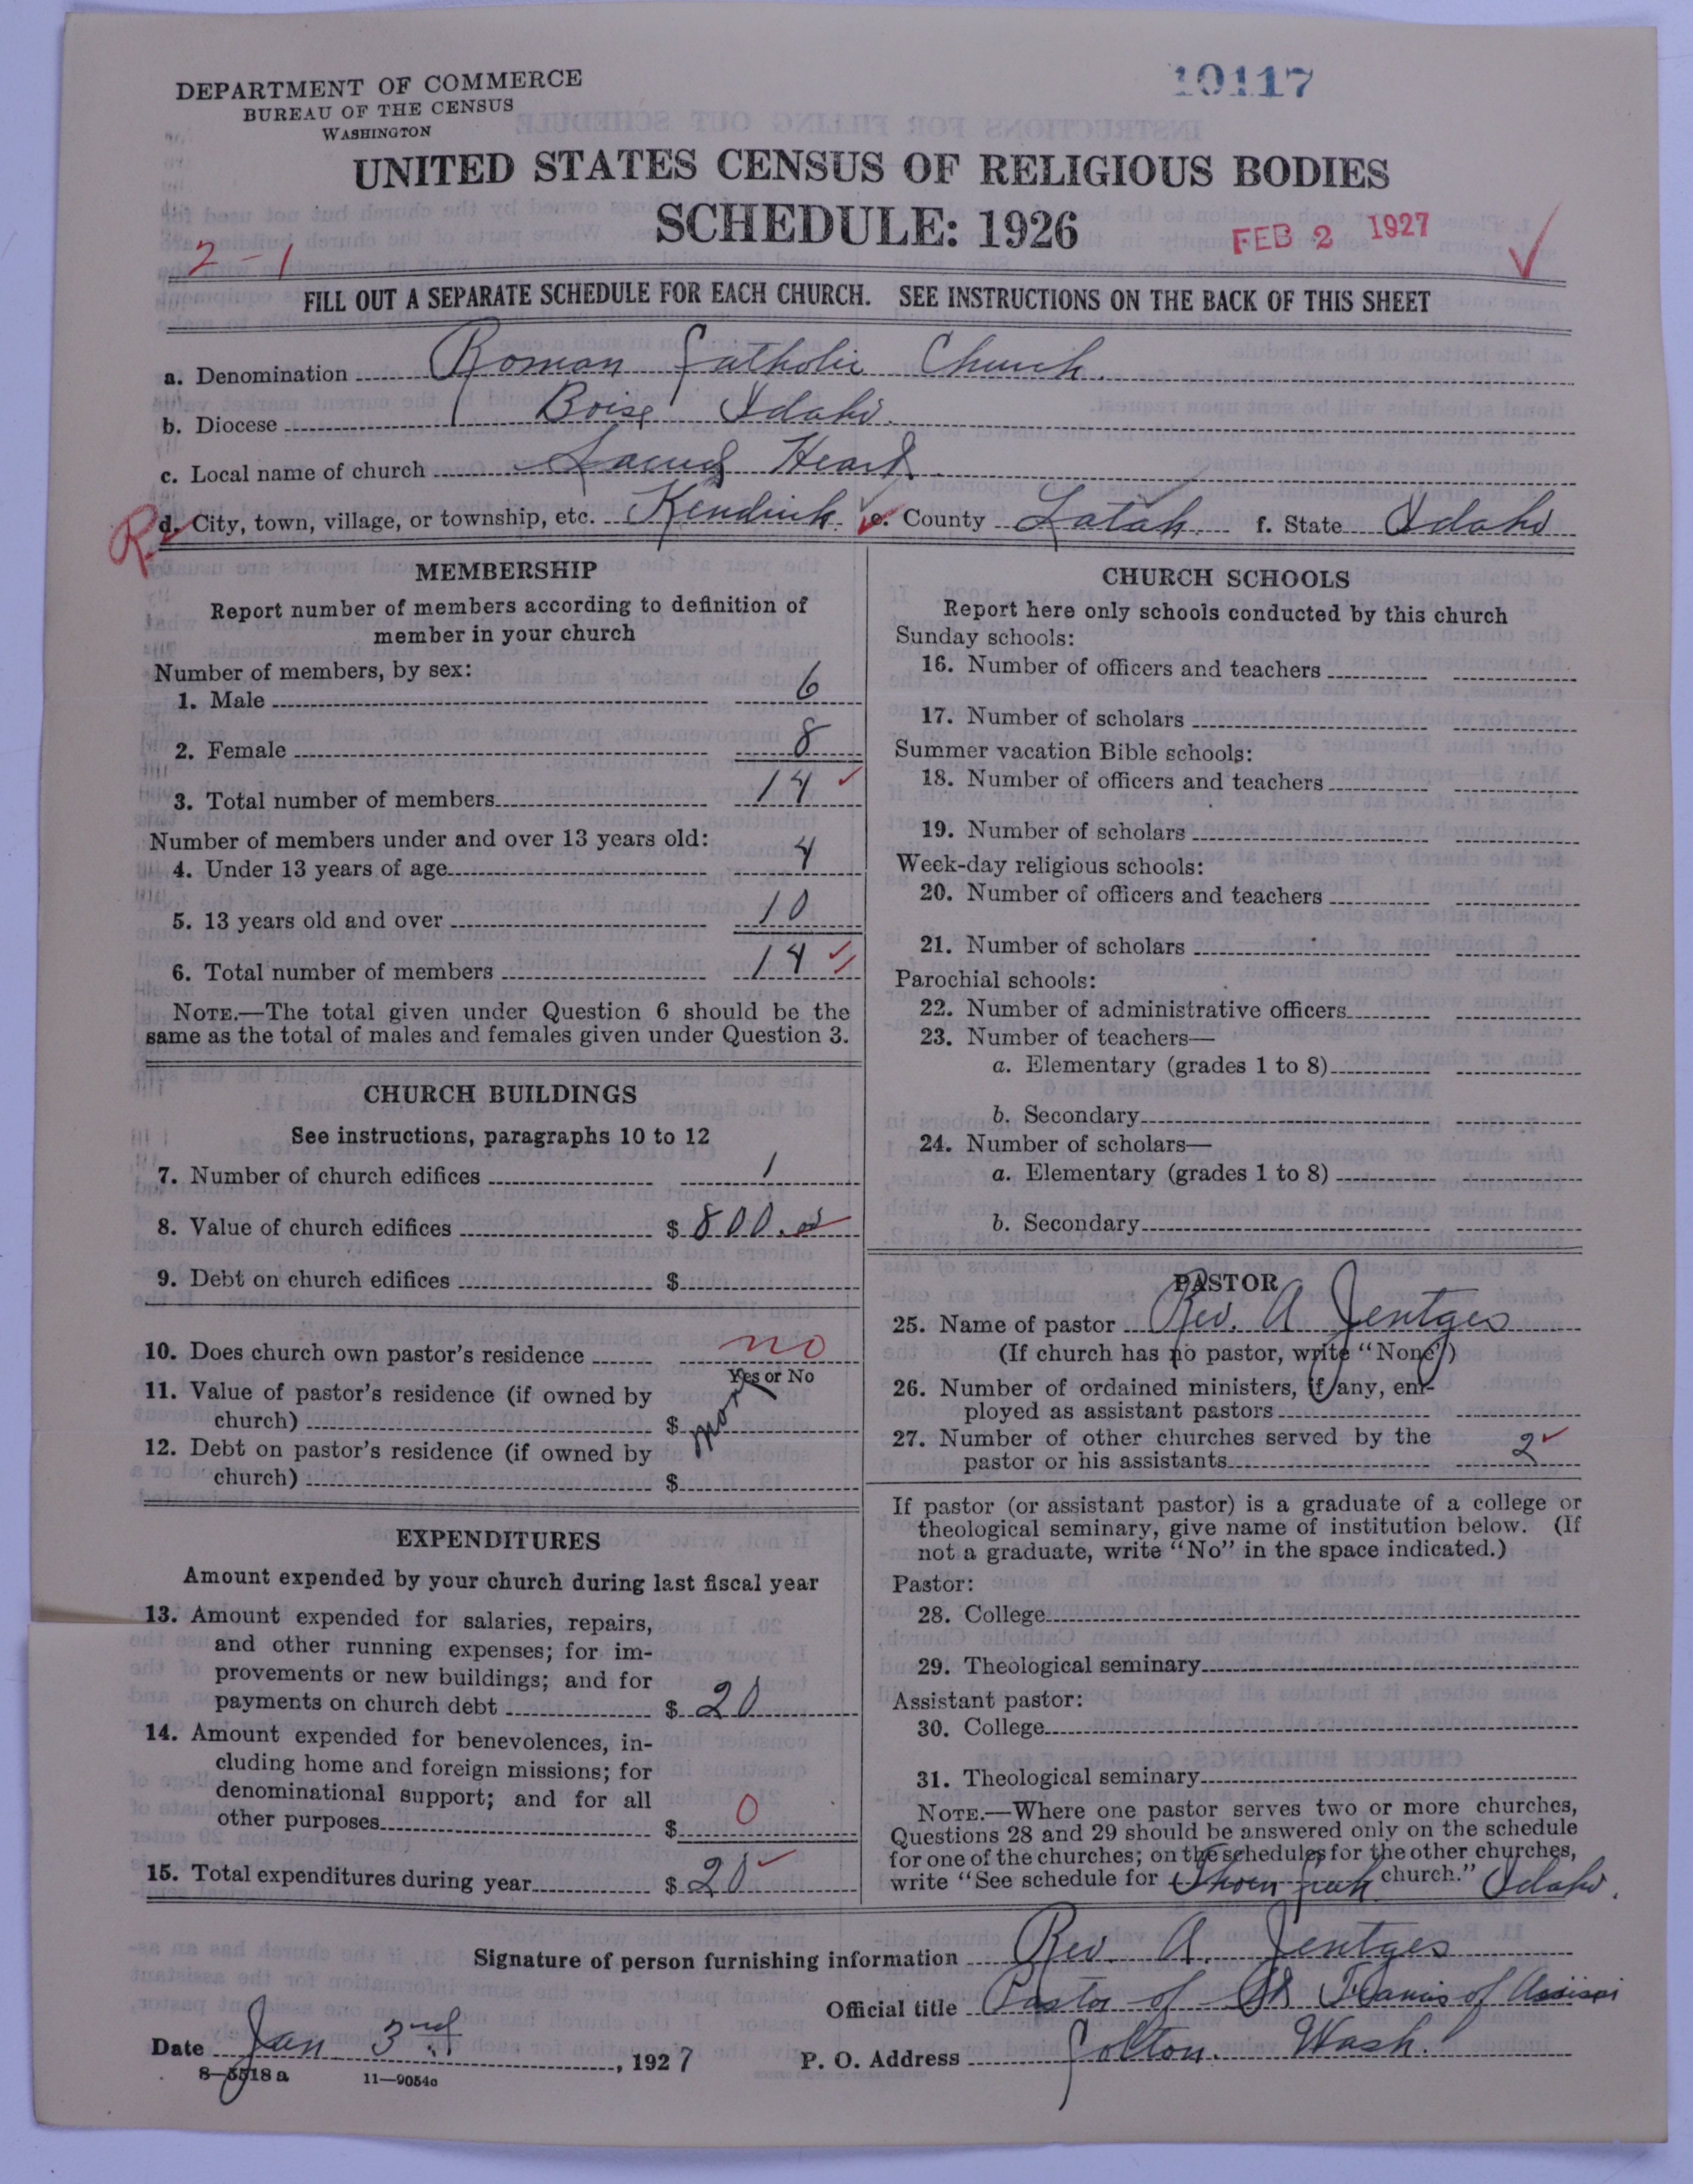 DEPARTMENT OF COMMERCE
BUREAU OF THE CENSUS
WASHINGTON
10117
UNITED STATES CENSUS OF RELIGIOUS BODIES
SCHEDULE: 1926
FEB 2 1927
2-1
FILL OUT A SEPARATE SCHEDULE FOR EACH CHURCH. SEE INSTRUCTIONS ON THE BACK OF THIS SHEET
a. Denomination Roman Catholic Church.
b. Diocese Boise Idaho.
c. Local name of church Sacred Heart.
R. d. City, town, village, or township, etc. Kendrick. e. County Latah. f. State Idaho
MEMBERSHIP
Report number of members according to definition of
member in your church
Number of members, by sex:
1. Male 6
2. Female 8
3. Total number of members 14
Number of members under and over 13 years old:
4. Under 13 years of age 4
5. 13 years old and over 10
6. Total number of members 14
NOTE.—The total given under Question 6 should be the
same as the total of males and females given under Question 3.
CHURCH BUILDINGS
See instructions, paragraphs 10 to 12
7. Number of church edifices 1
8. Value of church edifices $ 800.
9. Debt on church edifices $
10. Does church own pastor's residence no
Yes or No
11. Value of pastor's residence (if owned by
church) $
12. Debt on pastor's residence (if owned by
church) $
EXPENDITURES
Amount expended by your church during last fiscal year
13. Amount expended for salaries, repairs,
and other running expenses; for im-
provements or new buildings; and for
payments on church debt $ 20
14. Amount expended for benevolences, in-
cluding home and foreign missions; for
denominational support; and for all
other purposes $ 0
15. Total expenditures during year $ 20
CHURCH SCHOOLS
Report here only schools conducted by this church
Sunday schools:
16. Number of officers and teachers
17. Number of scholars
Summer vacation Bible schools:
18. Number of officers and teachers
19. Number of scholars
Week-day religious schools:
20. Number of officers and teachers
21. Number of scholars
Parochial schools:
22. Number of administrative officers
23. Number of teachers—
a. Elementary (grades 1 to 8)
b. Secondary
24. Number of scholars—
a. Elementary (grades 1 to 8)
b. Secondary
PASTOR
25. Name of pastor Rev. A Jentges
(If church has no pastor, write "None")
26. Number of ordained ministers, if any, em-
ployed as assistant pastors
27. Number of other churches served by the
pastor or his assistants 2
If pastor (or assistant pastor) is a graduate of a college or
theological seminary, give name of institution below. (If
not a graduate, write "No" in the space indicated.)
Pastor:
28. College
29. Theological seminary
Assistant pastor:
30. College
31. Theological seminary
NOTE.—Where one pastor serves two or more churches,
Questions 28 and 29 should be answered only on the schedule
for one of the churches; on the schedules for the other churches,
write "See schedule for church." Idaho.
Signature of person furnishing information Rev. A. Jentges
Official title Pastor of St Francis of Assissi
Date Jan 3rd, 1927 P. O. Address Colton. Wash.
8—5518 a 11—9054c